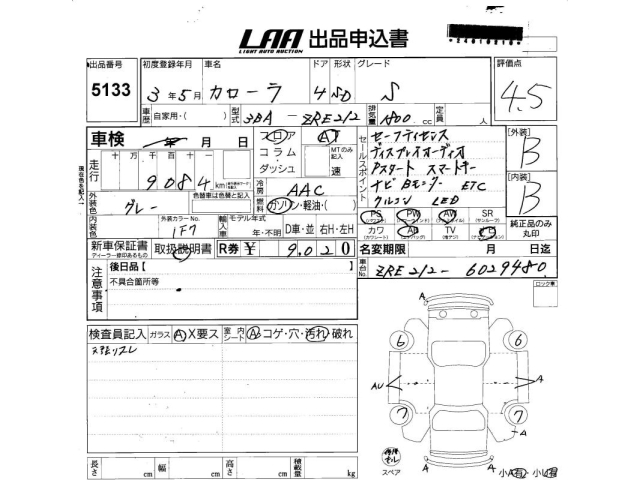 LAA 出品申込書
LIGHT AUTO AUCTION
出品番号 初度登録年月 車名 ドア 形状 グレード 評価点
5133 3年5月 カローラ 4 SD S 4.5
車歴 自家用・( ) 型式 3BA-ZRE212 排気量 1800 cc 定員 人
車検 年 月 日 フロア コラム ダッシュ AT MTのみ記入 速
セールスポイント
セーフティセンス
ディスプレイオーディオ
Pスタート スマートキー
ナビ Bモニター ETC
クルコン LED
[外装] B
[内装] B
走行 十 万 千 百 十 一
9084 km
冷房 AAC
外装色 グレー 色替車は色替と記入
燃料 ガソリン・軽油・( )
内装色 外装カラーNo. 1F7 輸入車 モデル年式 年・不明 D車・並 右H・左H
PS PW AW SR (サンルーフ)
カワ AB TV ナビ
純正品のみ丸印
新車保証書 取扱説明書 R券 ¥ 9,020 名変期限 月 日迄
ディーラー様印あるもの
車台No. ZRE212-6029480
注意事項 後日品 [ ]
不具合箇所等
ロック車
検査員記入 ガラス A X要ス 室内シート A コゲ・穴・汚れ・破れ
スペア
長さ cm 幅 cm 高さ cm 積載量 kg
A
6 6
AU A
7 7
A
A
小A有・小U有